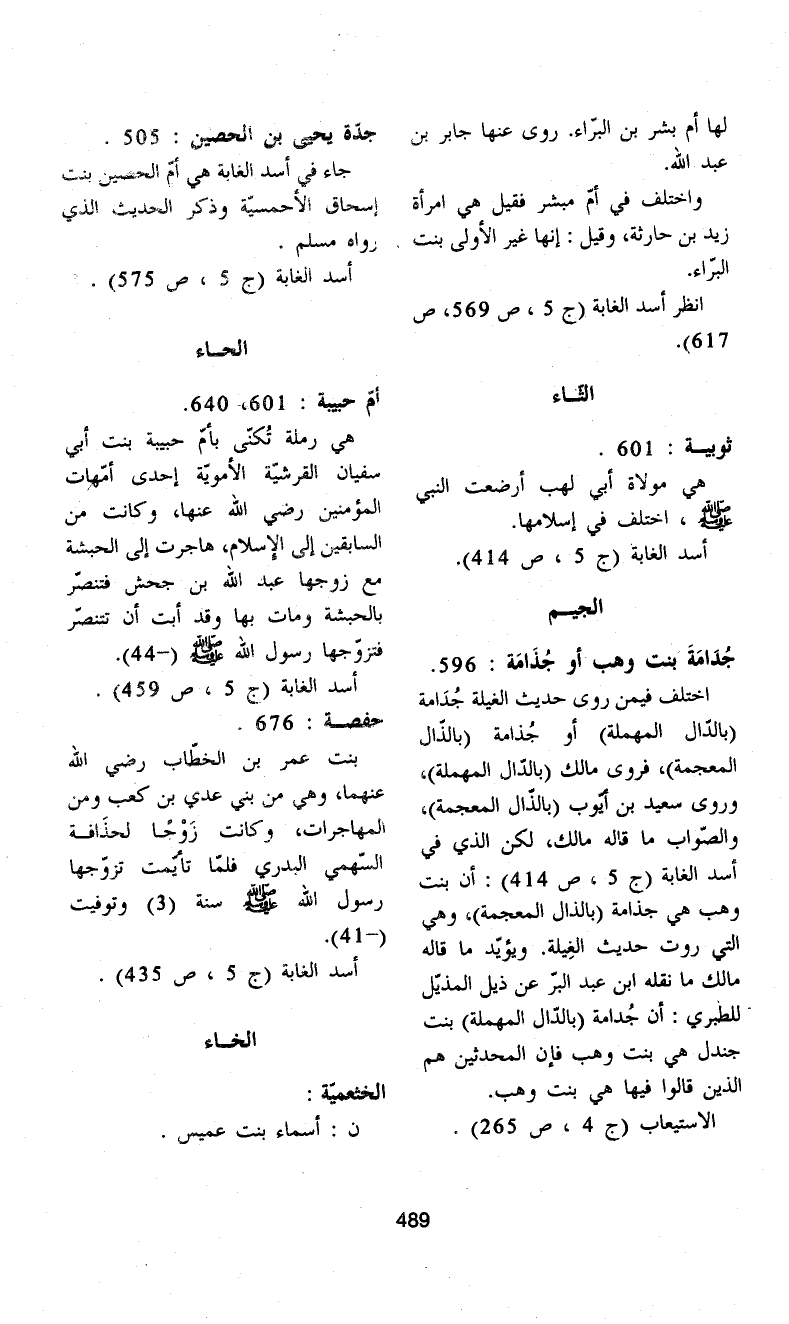 لها أم بشر بن البرّاء. روى عنها جابر بن
عبد الله.
واختلف في أمّ مبشر فقيل هي امرأة
زيد بن حارثة، وقيل : إنها غير الأولى بنت
البرّاء.
انظر أسد الغابة (ج 5 ، ص 569، ص
617).
الثّاء
ثوبية : 601 .
هي مولاة أبي لهب أرضعت النبي
ﷺ ، اختلف في إسلامها.
أسد الغابة (ج 5 ، ص 414).
الجيم
جُدَامَةَ بنت وهب أو جُذَامَة : 596.
اختلف فيمن روى حديث الغيلة جُدَامة
(بالدّال المهملة) أو جُذامة (بالذّال
المعجمة)، فروى مالك (بالدّال المهملة)،
وروى سعيد بن أيّوب (بالذّال المعجمة)،
والصّواب ما قاله مالك، لكن الذي في
أسد الغابة (ج 5 ، ص 414) : أن بنت
وهب هي جذامة (بالذال المعجمة)، وهي
التي روت حديث الغِيلة. ويؤيّد ما قاله
مالك ما نقله ابن عبد البرّ عن ذيل المذيّل
للطبري : أن جُدامة (بالدّال المهملة) بنت
جندل هي بنت وهب فإن المحدثين هم
الذين قالوا فيها هي بنت وهب.
الاستيعاب (ج 4 ، ص 265) .
جدّة يحيى بن الحصين : 505 .
جاء في أسد الغابة هي أمّ الحصين بنت
إسحاق الأحمسيّة وذكر الحديث الذي
رواه مسلم .
أسد الغابة (ج 5 ، ص 575) .
الحاء
أمّ حبيبة : 601، 640.
هي رملة تُكنّى بأمّ حبيبة بنت أبي
سفيان القرشيّة الأمويّة إحدى أمّهات
المؤمنين رضي الله عنها، وكانت من
السابقين إلى الإسلام، هاجرت إلى الحبشة
مع زوجها عبد الله بن جحش فتنصّر
بالحبشة ومات بها وقد أبت أن تتنصّر
فتزوّجها رسول الله ﷺ (–44).
أسد الغابة (ج 5 ، ص 459) .
حفصة : 676 .
بنت عمر بن الخطّاب رضي الله
عنهما، وهي من بني عدي بن كعب ومن
المهاجرات، وكانت زَوْجًا لحذَافة
السّهمي البدري فلمّا تأيّمت تزوّجها
رسول الله ﷺ سنة (3) وتوفيت
(–41).
أسد الغابة (ج 5 ، ص 435) .
الخاء
الخثعميّة :
ن : أسماء بنت عميس .
489